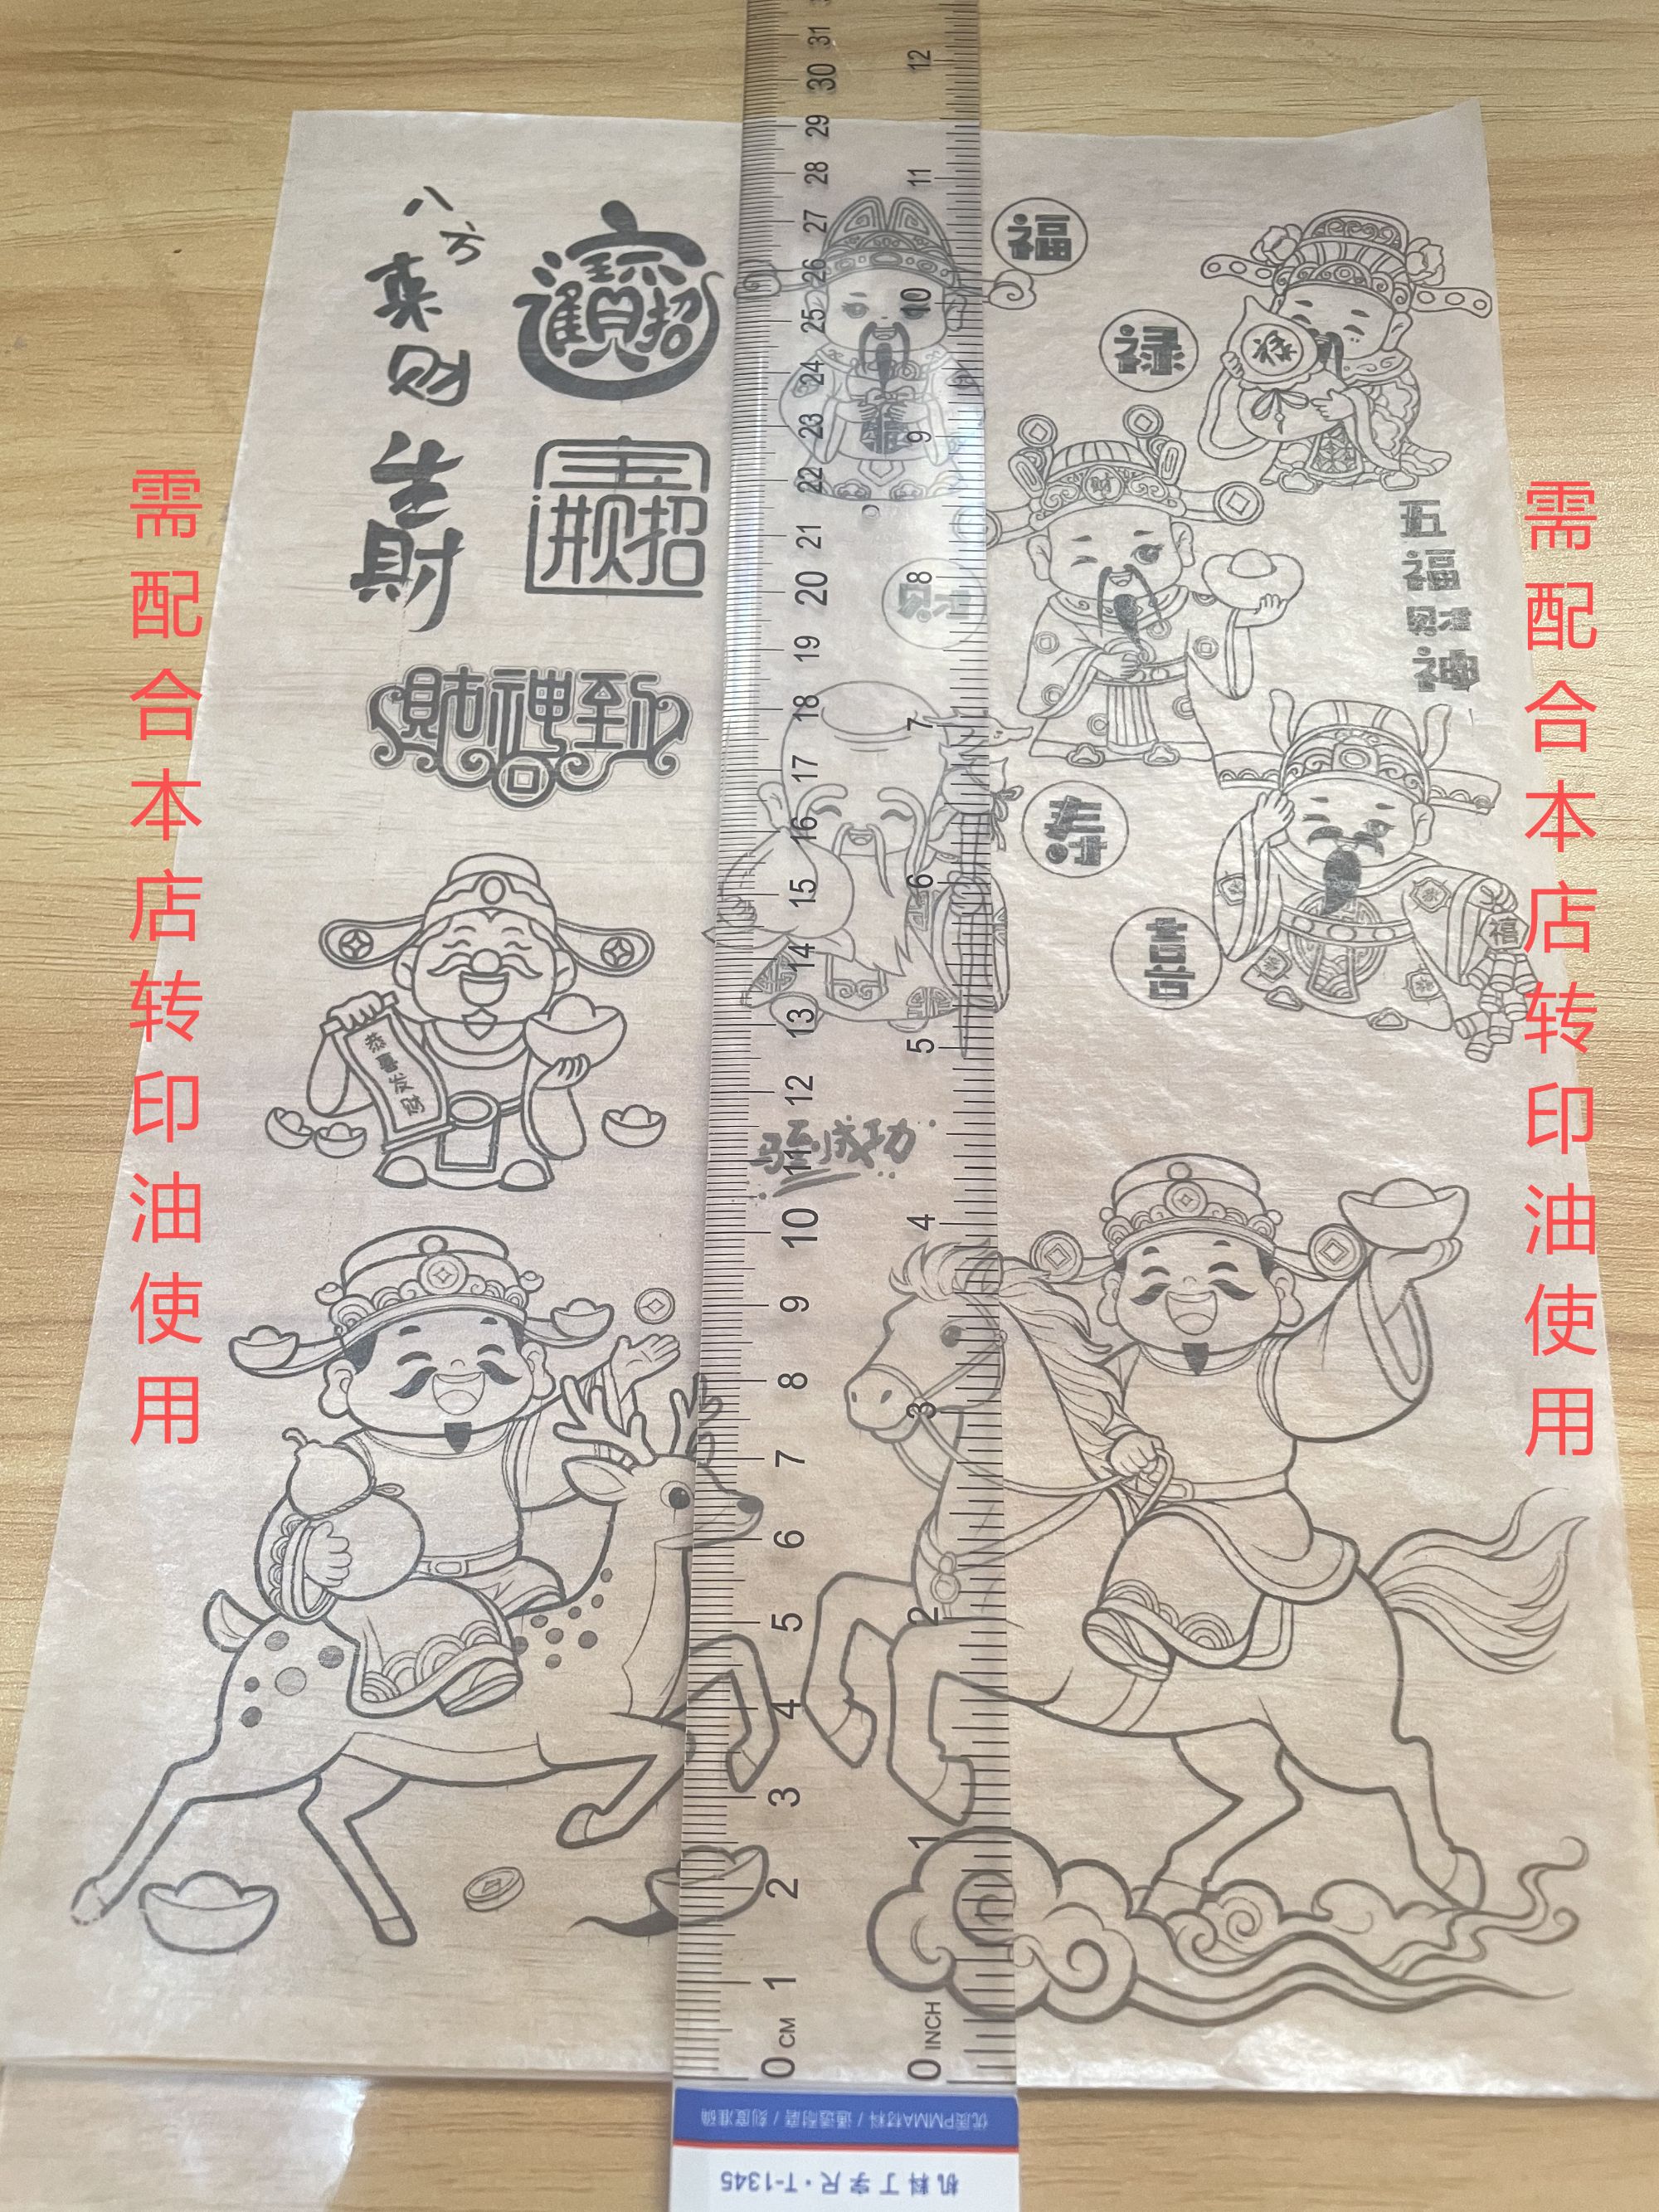 需配合本店转印油使用
需配合本店转印油使用
八方来财
生財
招财进宝
招财进宝
財神到
恭喜发财
福
禄
禄
财
财
寿
喜
福
五福财神
马到成功
31
30
29
28
27
26
25
24
23
22
21
20
19
18
17
16
15
14
13
12
11
10
9
8
7
6
5
4
3
2
1
0 CM
12
11
10
9
8
7
6
5
4
3
2
1
0 INCH
优质PMMA材料 / 通透耐磨 / 刻度准确
机料丁字尺·T-1345